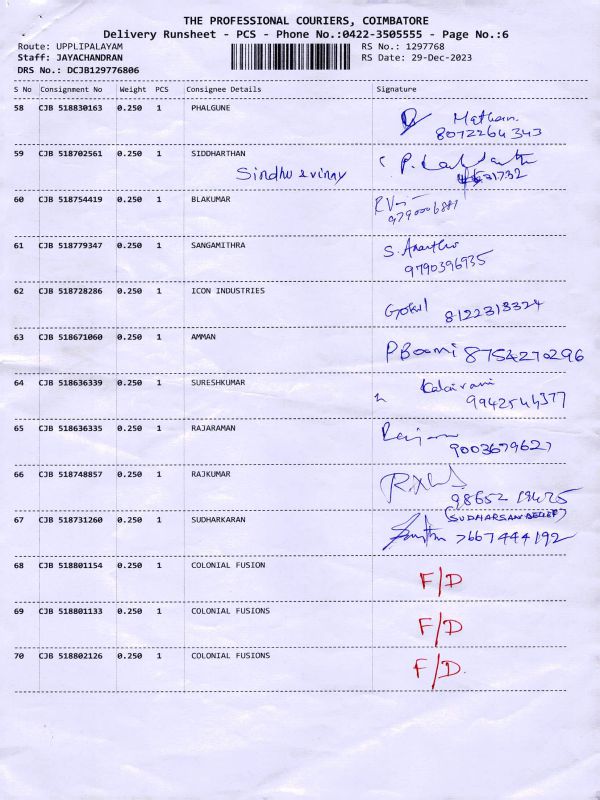 THE PROFESSIONAL COURIERS, COIMBATORE
Delivery Runsheet - PCS - Phone No.:0422-3505555 - Page No.:6
Route: UPPLIPALAYAM RS No.: 1297768
Staff: JAYACHANDRAN RS Date: 29-Dec-2023
DRS No.: DCJB129776806
S No Consignment No Weight PCS Consignee Details Signature
58 CJB 518830163 0.250 1 PHALGUNE Mathan
8072264343
59 CJB 518702561 0.250 1 SIDDHARTHAN
Sindhu
60 CJB 518754419 0.250 1 BLAKUMAR
61 CJB 518779347 0.250 1 SANGAMITHRA S.
9790396935
62 CJB 518728286 0.250 1 ICON INDUSTRIES
Gokul 8122313324
63 CJB 518671060 0.250 1 AMMAN
P Boomi 8754270296
64 CJB 518636339 0.250 1 SURESHKUMAR Kalaivani
9942544377
65 CJB 518636335 0.250 1 RAJARAMAN
9003679627
66 CJB 518748857 0.250 1 RAJKUMAR
98652 19475
67 CJB 518731260 0.250 1 SUDHARKARAN
7667444192
68 CJB 518801154 0.250 1 COLONIAL FUSION
F/D
69 CJB 518801133 0.250 1 COLONIAL FUSIONS
F/D
70 CJB 518802126 0.250 1 COLONIAL FUSIONS
F/D.